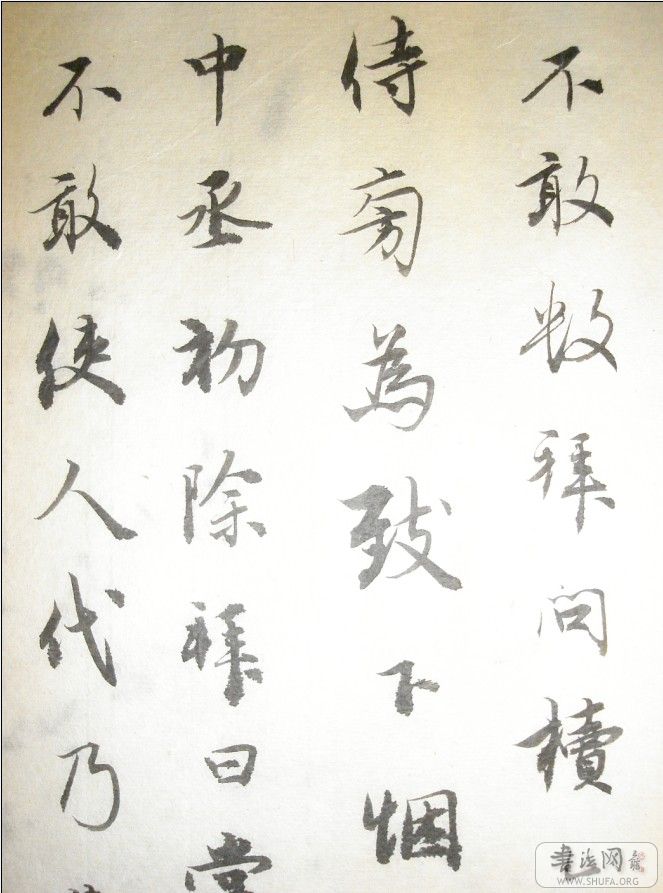 不敢数拜問櫝
侍旁為致下悃
中丞初除拜日
不敢使人代乃
書法网
WWW.SHUFA.ORG